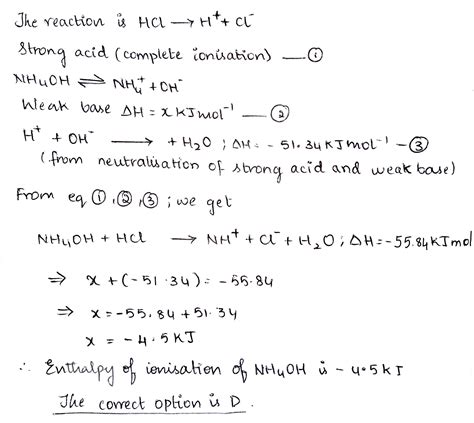 The reaction is HCl ⟶ H⁺ + Cl⁻
Strong acid (complete ionisation) —①
NH₄OH ⇌ NH₄⁺ + OH⁻
Weak base ΔH = x kJ mol⁻¹ —②
H⁺ + OH⁻ ⟶ + H₂O ; ΔH = - 51.34 KJ mol⁻¹ —③
(from neutralisation of strong acid and weak base)
From eq ①,②,③ ; we get
NH₄OH + HCl ⟶ NH⁺ + Cl⁻ + H₂O ; ΔH = -55.84 KJ mol
⇒ x + (-51.34) = -55.84
⇒ x = -55.84 + 51.34
x = -4.5 KJ
∴ Enthalpy of ionisation of NH₄OH is - 4.5 kJ
The correct option is D.